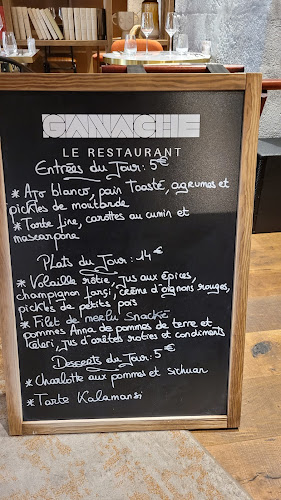 GANACHE
LE RESTAURANT
Entrées du Jour: 5€
* Ajo blanco, pain toasté, agrumes et
pickles de moutarde
* Tarte fine, carottes au cumin et
mascarpone
Plats du Jour: 14€
* Volaille rôtie, jus aux épices,
champignon farçi, crème d'oignons rouges,
pickles de petits pois
* Filet de merlu snacké
pommes Anna de pommes de terre et
céleri, jus d'arêtes roties et condiments
Desserts du Jour: 5€
* Charlotte aux pommes et sichuan
* Tarte Kalamansi